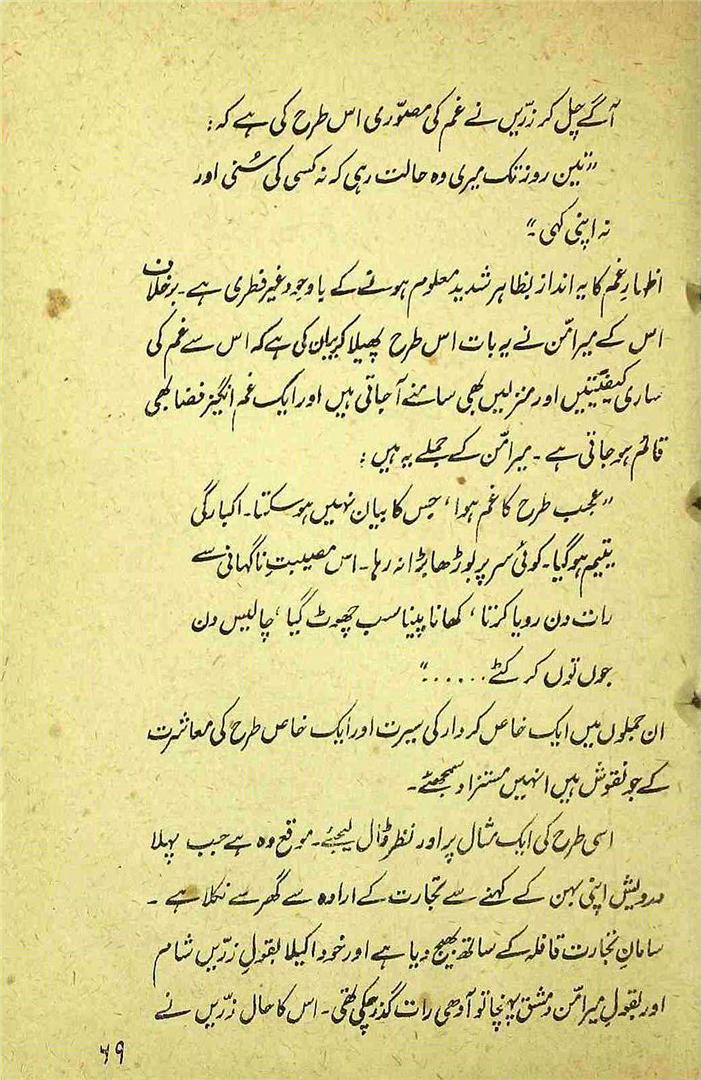 آگے چل کر زرّیں نے غم کی مصوّری اس طرح کی ہے کہ :
"تین روز تک میری وہ حالت رہی کہ نہ کسی کی سُنی اور
نہ اپنی کہی۔"
اظہارِ غم کا یہ انداز بظاہر شدید معلوم ہونے کے باوجود غیر فطری ہے۔ برخلاف
اس کے میر امّن نے یہ بات اس طرح پھیلا کر بیان کی ہے کہ اس سے غم کی
ساری کیفیتیں اور منزلیں بھی سامنے آ جاتی ہیں اور ایک غم انگیز فضا بھی
قائم ہو جاتی ہے۔ میر امّن کے جملے یہ ہیں :
"عجب طرح کا غم ہوا، جس کا بیان نہیں ہو سکتا۔ اکبارگی
یتیم ہو گیا۔ کوئی سر پر بوڑھا بڑا نہ رہا۔ اس مصیبتِ ناگہانی سے
رات دن رویا کرتا، کھانا پینا سب چھوٹ گیا، چالیس دن
جوں توں کر کٹے......"
ان جملوں میں ایک خاص کردار کی سیرت اور ایک خاص طرح کی معاشرت
کے جو نقوش ہیں انہیں مستزاد سمجھئے۔
اسی طرح کی ایک مثال پر اور نظر ڈال لیجئے۔ موقع وہ ہے جب پہلا
درویش اپنی بہن کے کہنے سے تجارت کے ارادہ سے گھر سے نکلا ہے۔
سامانِ تجارت قافلہ کے ساتھ بھیج دیا ہے اور خود اکیلا بقولِ زرّیں شام
اور بقولِ میر امّن دمشق پہنچا تو آدھی رات گذر چکی تھی۔ اس کا حال زرّیں نے
۶۹